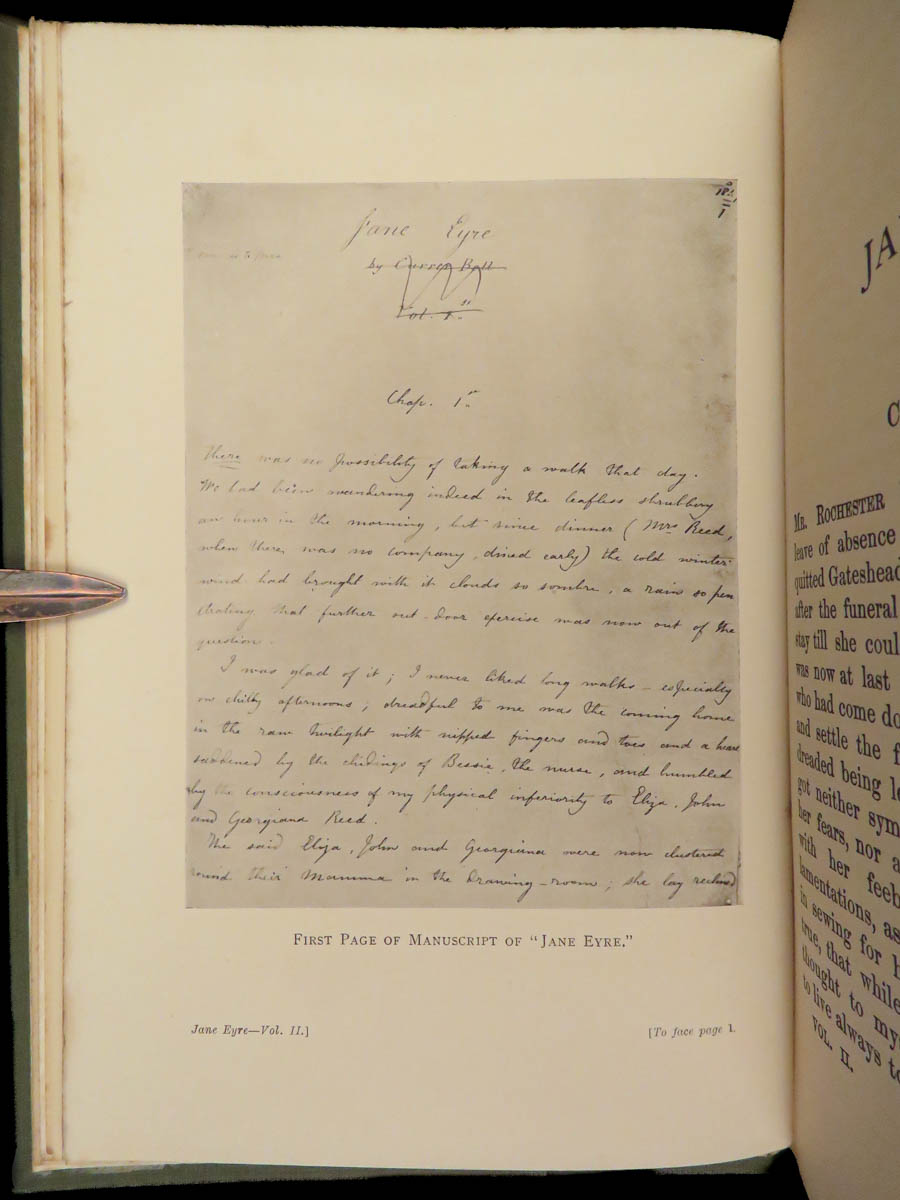 Jane Eyre
by Currer Bell
Vol. 1st
Chap. 1st
There was no possibility of taking a walk that day.
We had been wandering indeed in the leafless shrubbery
an hour in the morning, but since dinner (Mrs Reed,
when there was no company, dined early) the cold winter
wind had brought with it clouds so sombre, a rain so pen
etrating that further out-door exercise was now out of the
question.
I was glad of it; I never liked long walks - especially
on chilly afternoons; dreadful to me was the coming home
in the raw twilight with nipped fingers and toes and a heart
saddened by the chidings of Bessie, the nurse, and humbled
by the consciousness of my physical inferiority to Eliza, John
and Georgiana Reed.
The said Eliza, John and Georgiana were now clustered
round their Mamma in the drawing-room; she lay reclined
FIRST PAGE OF MANUSCRIPT OF "JANE EYRE."
Jane Eyre—Vol. II.]
[To face page 1.
JA
C
MR. ROCHESTER
leave of absence
quitted Gateshead
after the funeral
stay till she coul
was now at last
who had come do
and settle the f
dreaded being le
got neither sym
her fears, nor a
with her feeb
lamentations, as
in sewing for h
true, that while
thought to my
to live always to
VOL. II.